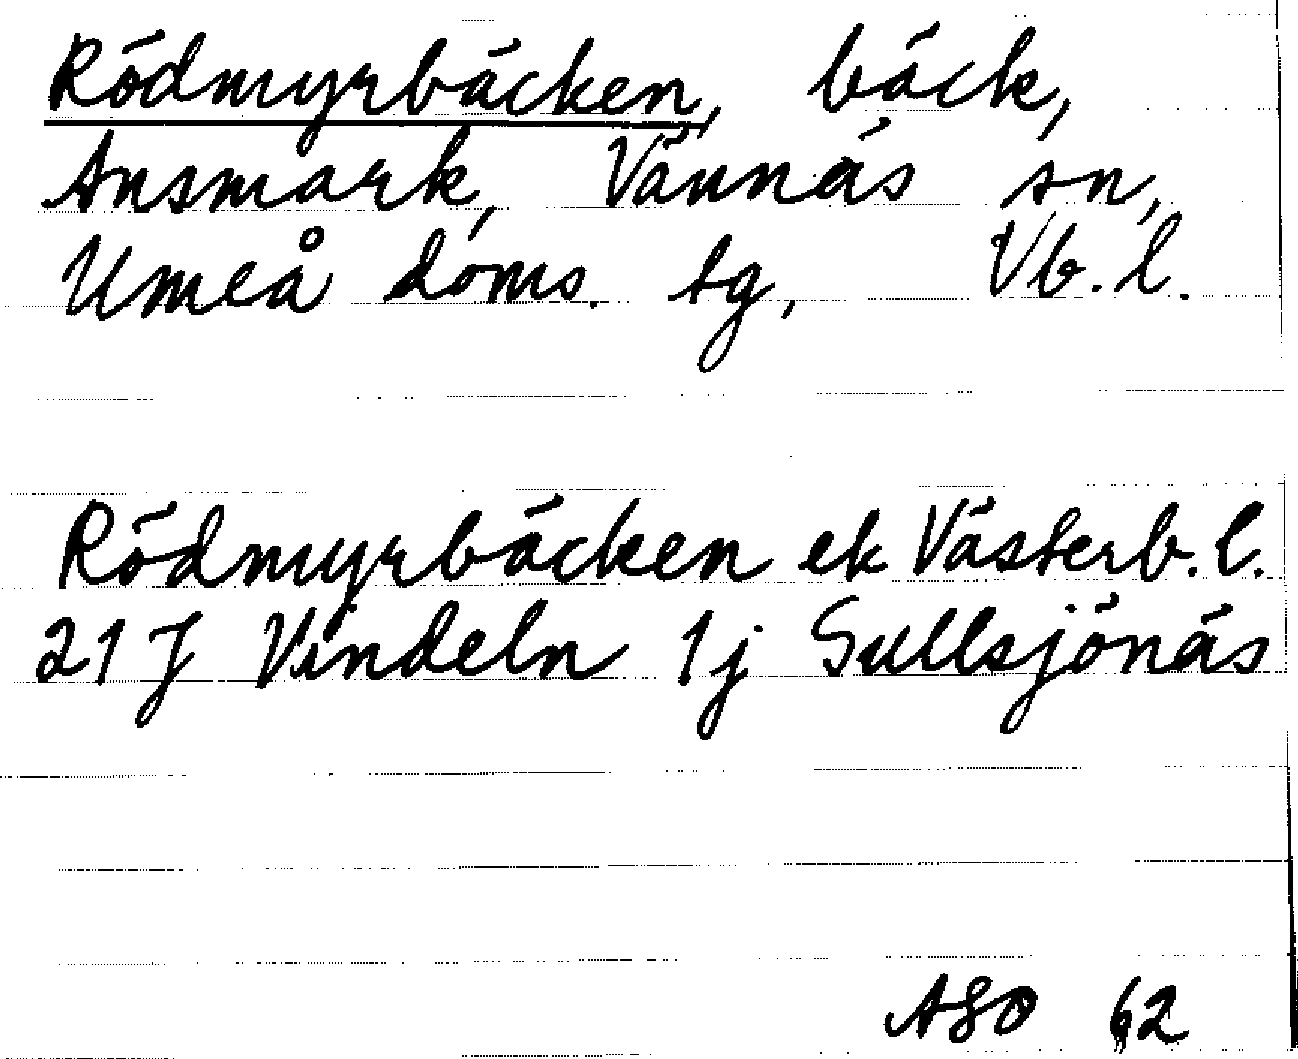 Rödmyrbäcken, bäck,
Ansmark, Vännäs sn,
Umeå doms. tg, Vb. l.
Rödmyrbäcken ek Västerb. l.
21 J Vindeln 1j Sullsjönäs
ASO 62